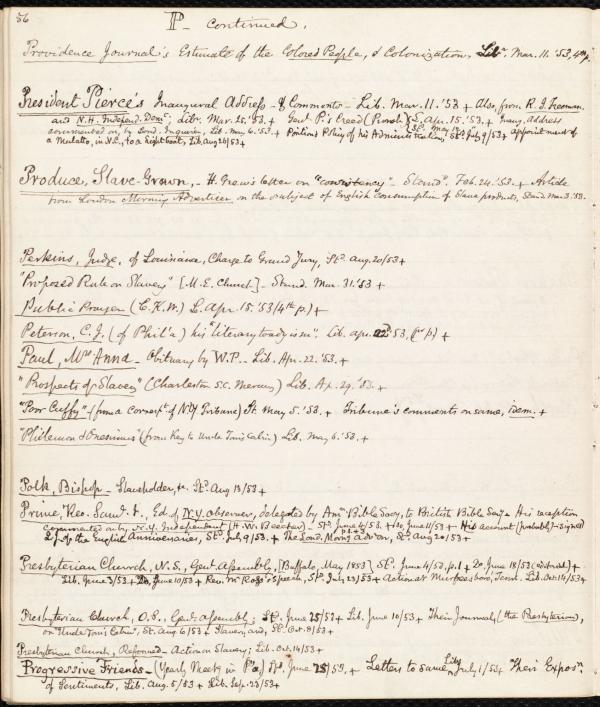 56
P. continued.
Providence Journal's Estimate of the Colored People, & Colonization, Lib. Mar. 11. '53, 4th p.
President Pierce's Inaugural Address - & Comments - Lib. Mar. 11. '53 + Also, from R. I. Freeman.
and N.H. Independ. Demt; Libr. Mar. 25. '53. + Genl P.'s Creed St. Apr. 15. '53. + Inaug. address
commented on, by Lond. Inquirer, Lib. May 6. '53 + Position & Policy of his Administration, Std July 9/53 + Appointment of
a Mulatto, in N.C., to a Lib. Aug 26/53 +
Produce, Slave-Grown, - H. Grew's letter on "consistency" - Stand. Feb. 24. '53. + Article
from London Morning Advertiser, on the subject of English Consumption of Slave products, Stand. Mar. 3. '53.
Perkins, Judge, of Louisiana, Charge to Grand Jury, Std. Aug. 20/53 +
"Proposed Rule on Slavery" [M.E. Church] - Stand. Mar. 31. '53 +
Public Prayer (C.K.W.) L. Apr. 15. '53 (4th p.) +
Peterson, C.J. (of Phila.) his "literary toadyism". Lib. Apr. 22. '53, (1st p.) +
Paul, Mrs Anna - Obituary by W.P. - Lib. Apr. 22. '53. +
"Prospects of Slavery" (Charleston S.C. Mercury) Lib. Ap. 29. '53. +
"Poor Cuffy" - (from a Correspt. of N.Y. Tribune) St. May 5. '53. + Tribune's comments on same, idem. +
"Philemon & Onesimus" (from Key to Uncle Tom's Cabin) Lib. May 6. '53. +
Polk, Bishop - Slaveholder, &c. Std. Aug 13/53 +
Prime, Rev. Saml. I., Ed. of N.Y. Observer, delegated by Amn Bible Socy, to British Bible Socy + His reception
commented on by N.Y. Independent (H.W. Beecher) - Std. June 4/53. + Do. June 11/53 + His account (probably) signed
of the English Anniversaries, Std. July 9/53. + The Lond. Morng Adver. on, Std. Aug 20/53 +
Presbyterian Church, N.S., Genl. Assembly, [Buffalo, May 1853] Std. June 4/53, p. 1 + Do. June 18/53 (editorial) +
Lib. June 3/53 + Do. June 10/53 + Rev. Mr Ross's speech, Std. July 23/53 + Action at Murfreesboro, Tenn. Lib. Oct. 14/53 +
Presbyterian Church, O.S., Genl. Assembly; Std. June 25/53 + Lib. June 10/53 + Their Journals, (the Presbyterian),
on "Uncle Tom's Cabin", St. Aug. 6/53 + Slavery, and, Std. Oct. 8/53 +
Presbyterian Church, Reformed - Action on Slavery; Lib. Oct. 14/53 +
Progressive Friends - (Yearly Meetg in Pa.) Std. June 25/53. + Letters to same, Lib. July 1/53 + Their Exposn.
of Sentiments, Lib. Aug. 5/53 + Lib. Sep. 23/53 +